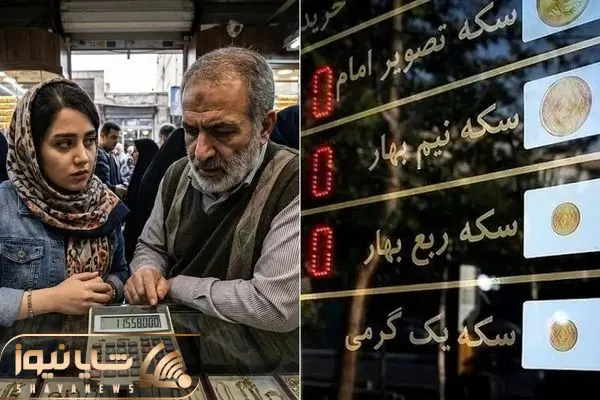 خرید
سکه تصویر امام 0
سکه نیم بهار 0
سکه ربع بهار 0
سکه یک گرمی
11558000
شایانیوز
SHAYANEWS